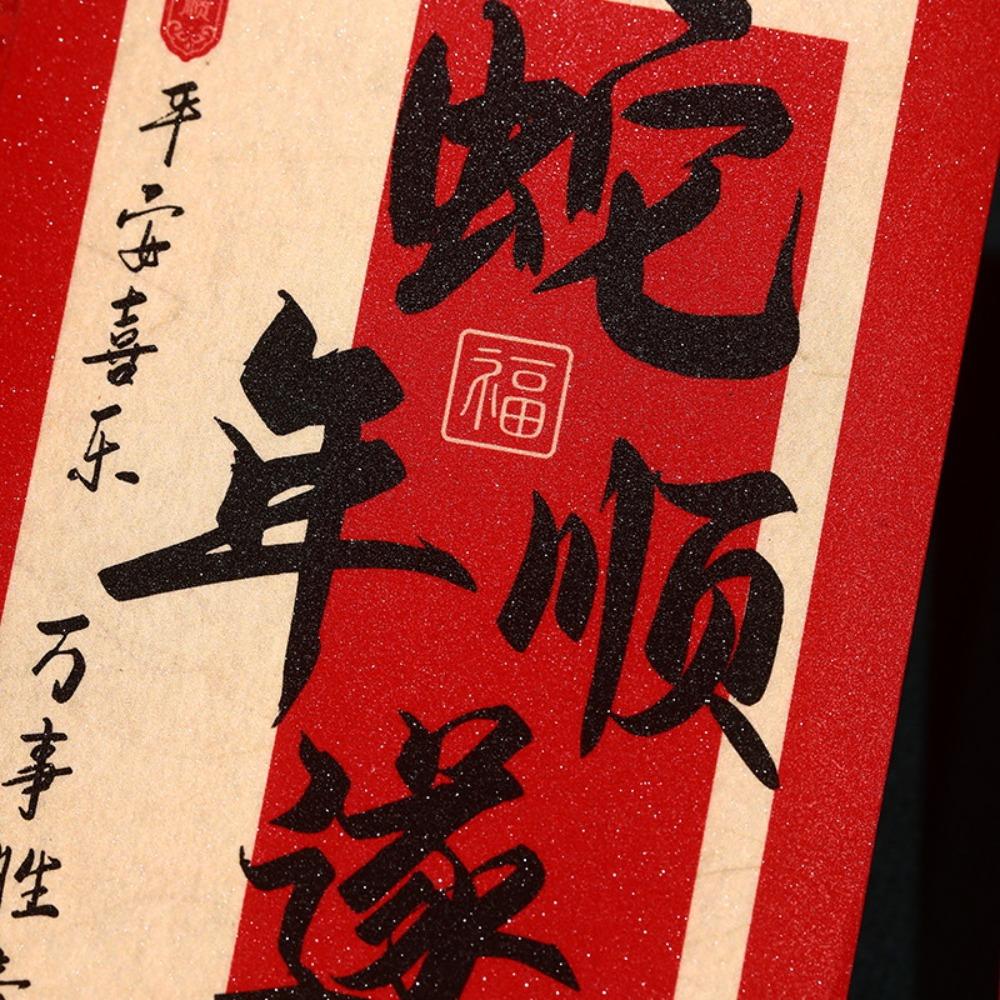 蛇年
顺遂
福
顺
平安喜乐
万事胜